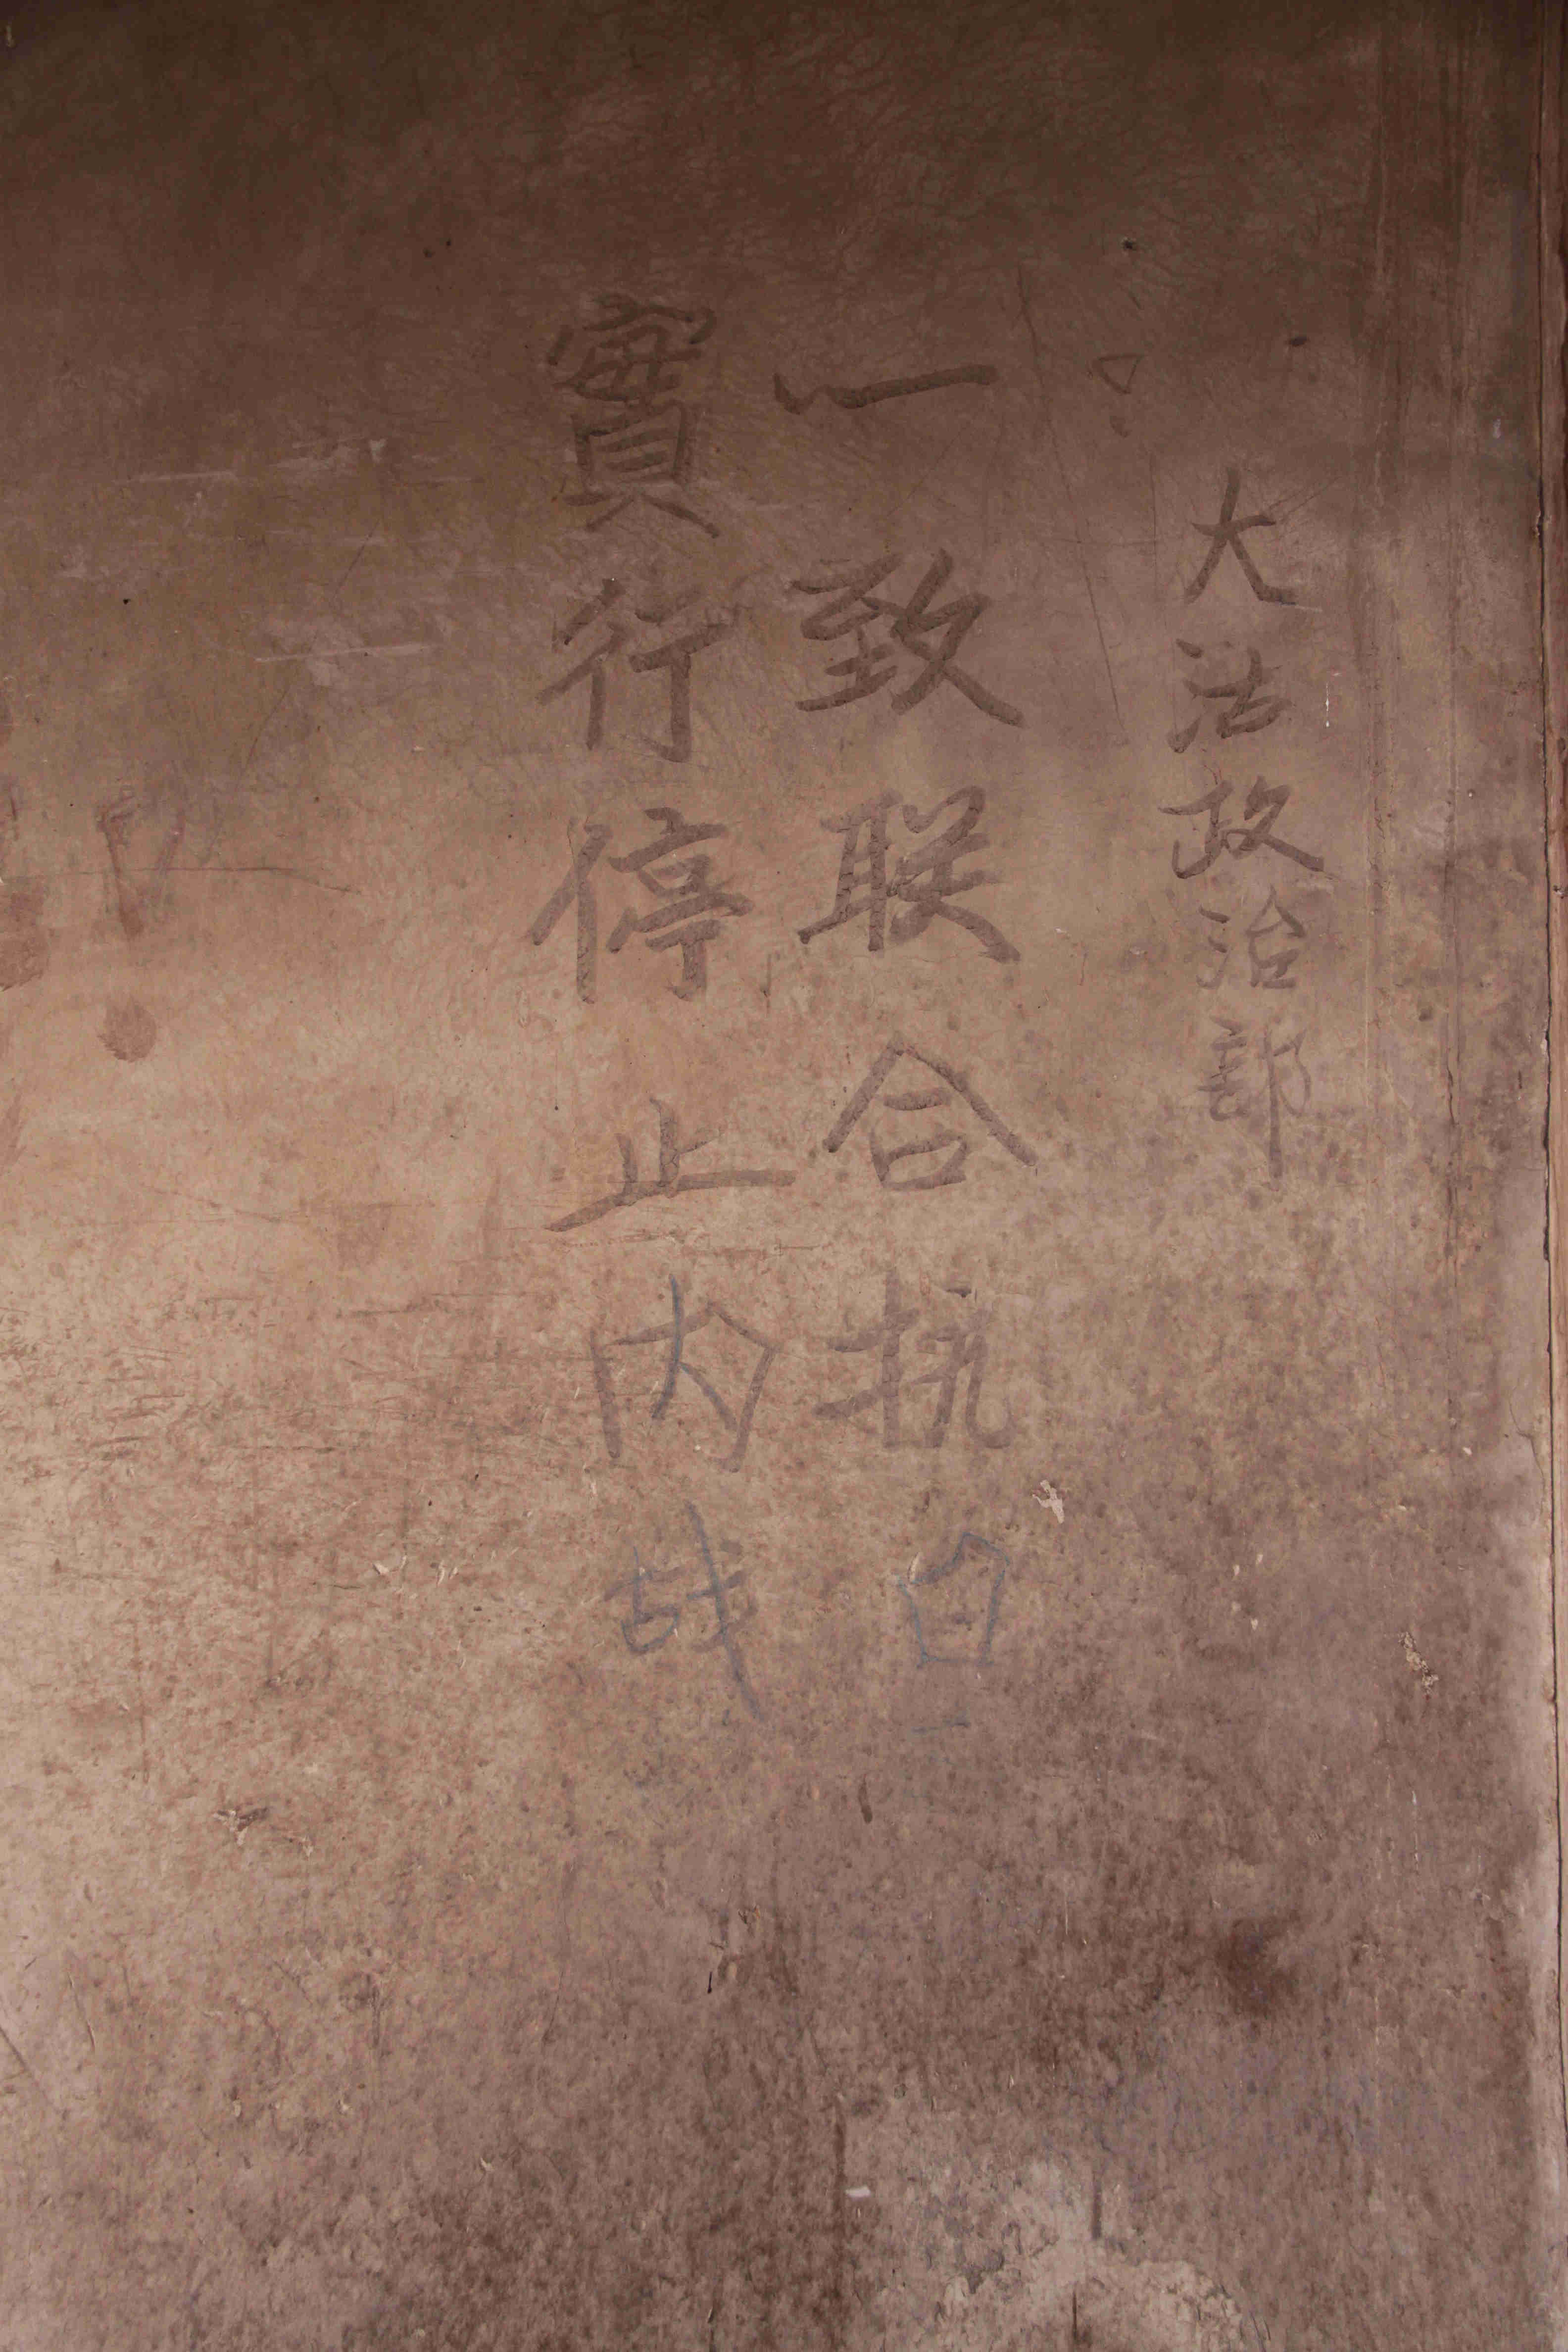 大活政治部
一致联合抗日
實行停止内战